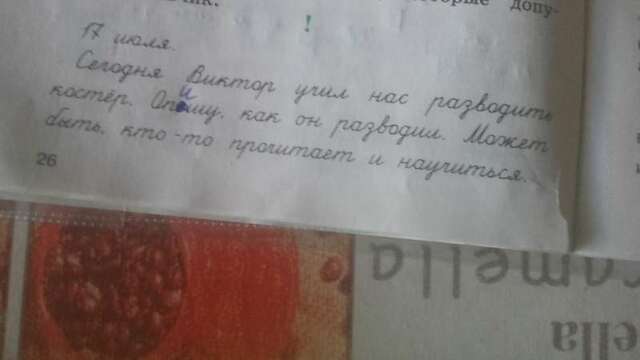 допу-
!
17 июля.
Сегодня Виктор учил нас разводить
костёр. Опишу, как он разводил. Может
быть, кто-то прочитает и научиться.
26
amella
ella